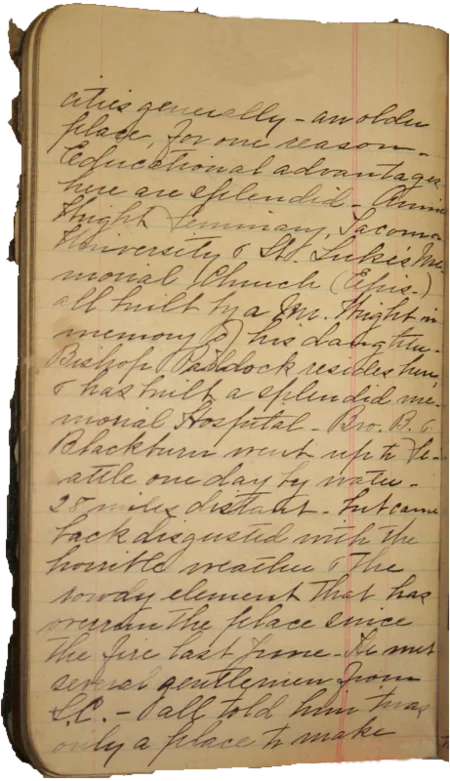 cities generally - an older
place, for one reason -
Educational advantages
here are splendid - Annie
Wright Seminary, Tacoma
University & St. Luke's Me-
morial Church (Epis.)
all built by a Mr. Wright in
memory of his daughter.
Bishop Paddock resides here,
& has built a splendid me-
morial Hospital - Bro. B. &
Blackburn went up to Se-
attle one day by water -
28 miles distant - but came
back disgusted with the
horrible weather & the
rowdy element that has
overrun the place since
the fire last June - He met
several gentlemen from
S.C. - & all told him twas
only a place to make